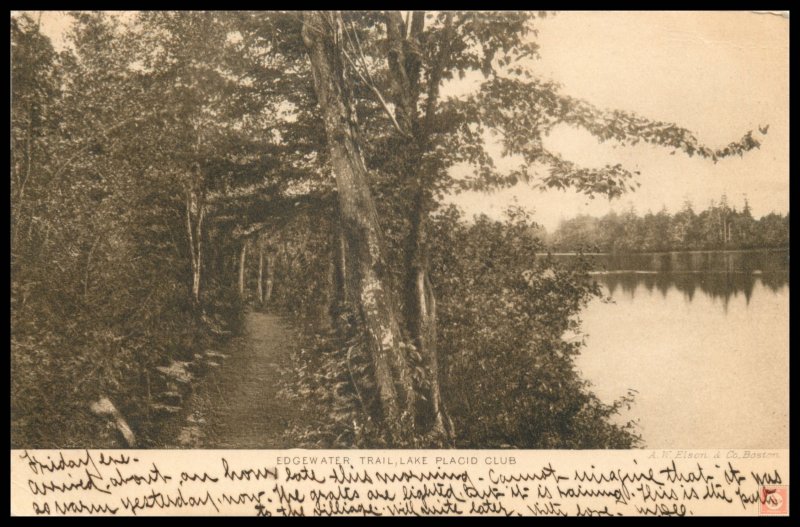 EDGEWATER TRAIL, LAKE PLACID CLUB
A.W. Elson & Co. Boston
Friday eve.
arrived about an hour late this morning. Cannot imagine that it was
so warm yesterday, now. The grates are lighted but it is raining. This is the path
to the village. Will write later. With love.